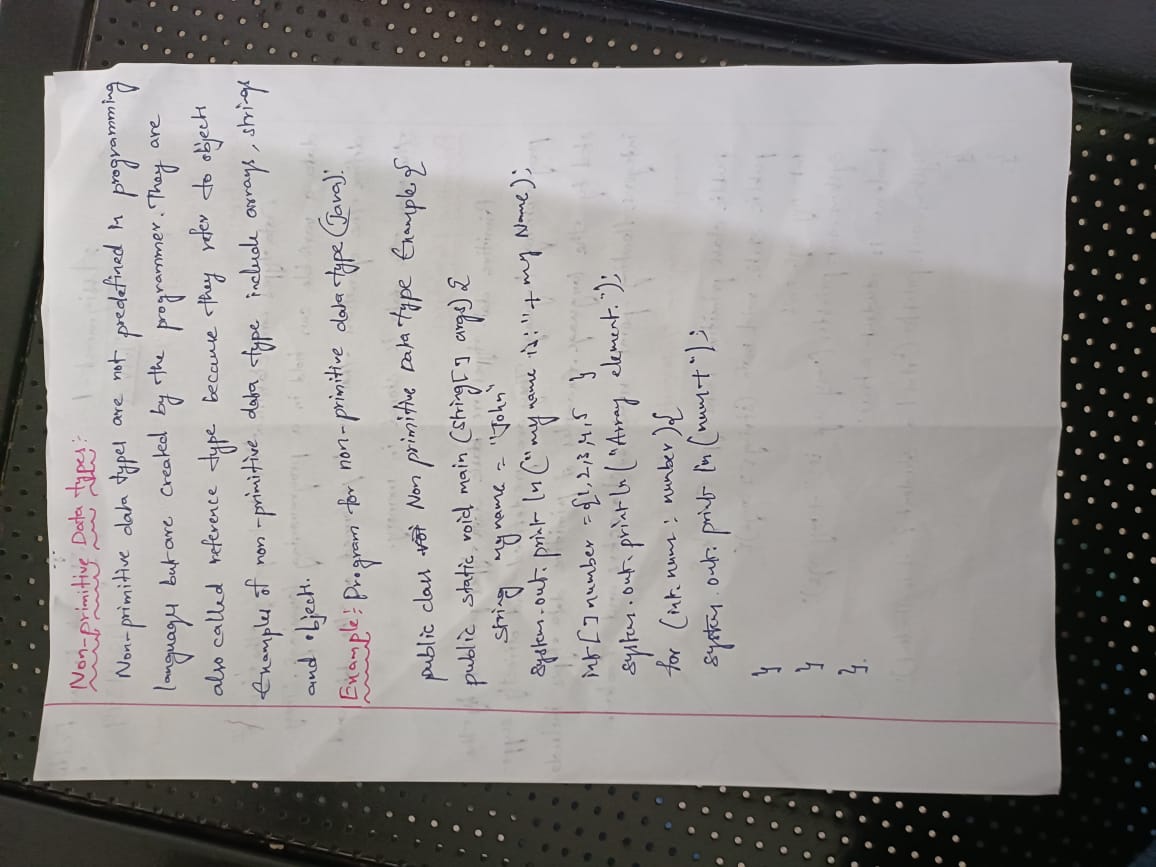 Non-primitive Data types:-
Non-primitive data types are not predefined in programming
languages but are created by the programmer. They are
also called reference type because they refer to objects
Examples of non-primitive data type include arrays, strings
and objects.
Example: Program for non-primitive data type (Java):
public class Non primitive Data type Example {
public static void main (String[] args) {
String myname = "John"
System.out.println ("my name is:" + my Name);
int [] number = {1,2,3,4,5 }
System.out.println ("Array element:");
for (int num : number) {
System.out.println (num + " ");
}
}
}.